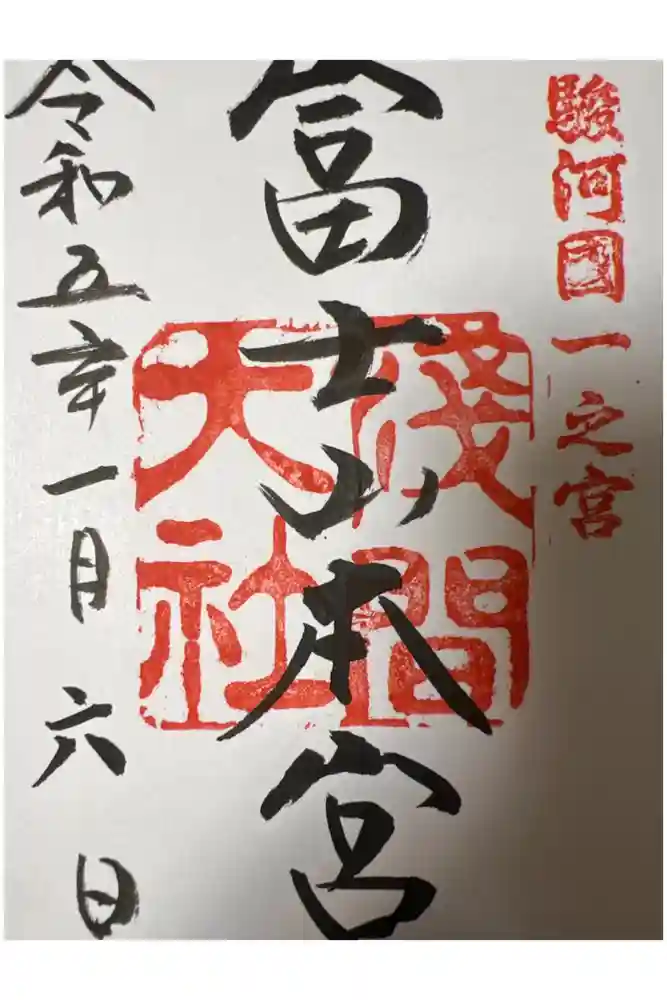 駿河國一之宮
冨士山本宮
淺間
大社
令和五年一月六日